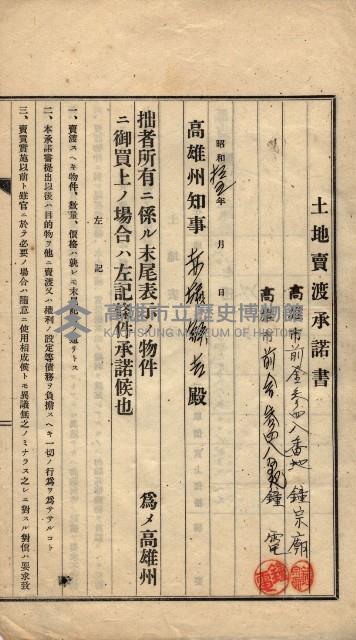 土地賣渡承諾書
高雄市前金參四八番地 鐘宗廟
高雄市前金參四八番地 鐘電
昭和拾五年 月 日
高雄州知事 赤堀鐵吉 殿
拙者所有ニ係ル末尾表示ノ物件 為メ高雄州
ニ御買上ノ場合ハ左記條件承諾候也
左記
一、賣渡スヘキ物件、數量、價格ハ執レモ末尾記載ノ通リトス
二、本承諾書提出以後ハ目的物ヲ他ニ賣渡又ハ權利ノ設定等債務ヲ負擔スヘキ一切ノ行為ヲ為ササルコト
三、賣買實施以前ト雖官ニ於テ必要ノ場合ハ隨意ニ使用相成候トモ異議無之ノミナラス之レニ對スル對價ハ要求致
高雄市立歷史博物館
KAOHSIUNG MUSEUM OF HISTORY